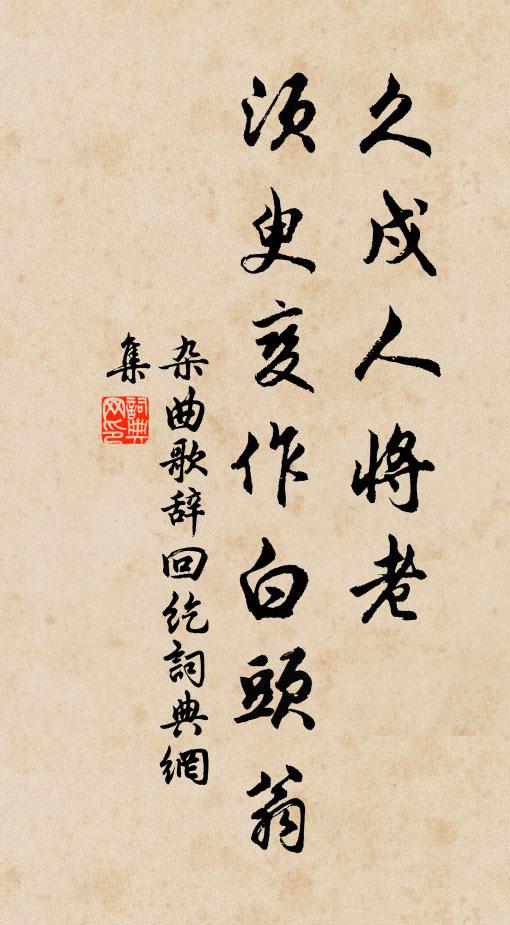 久戍人将老
须臾变作白頭翁
杂曲歌辞回纥詞典網
集
詞典网印